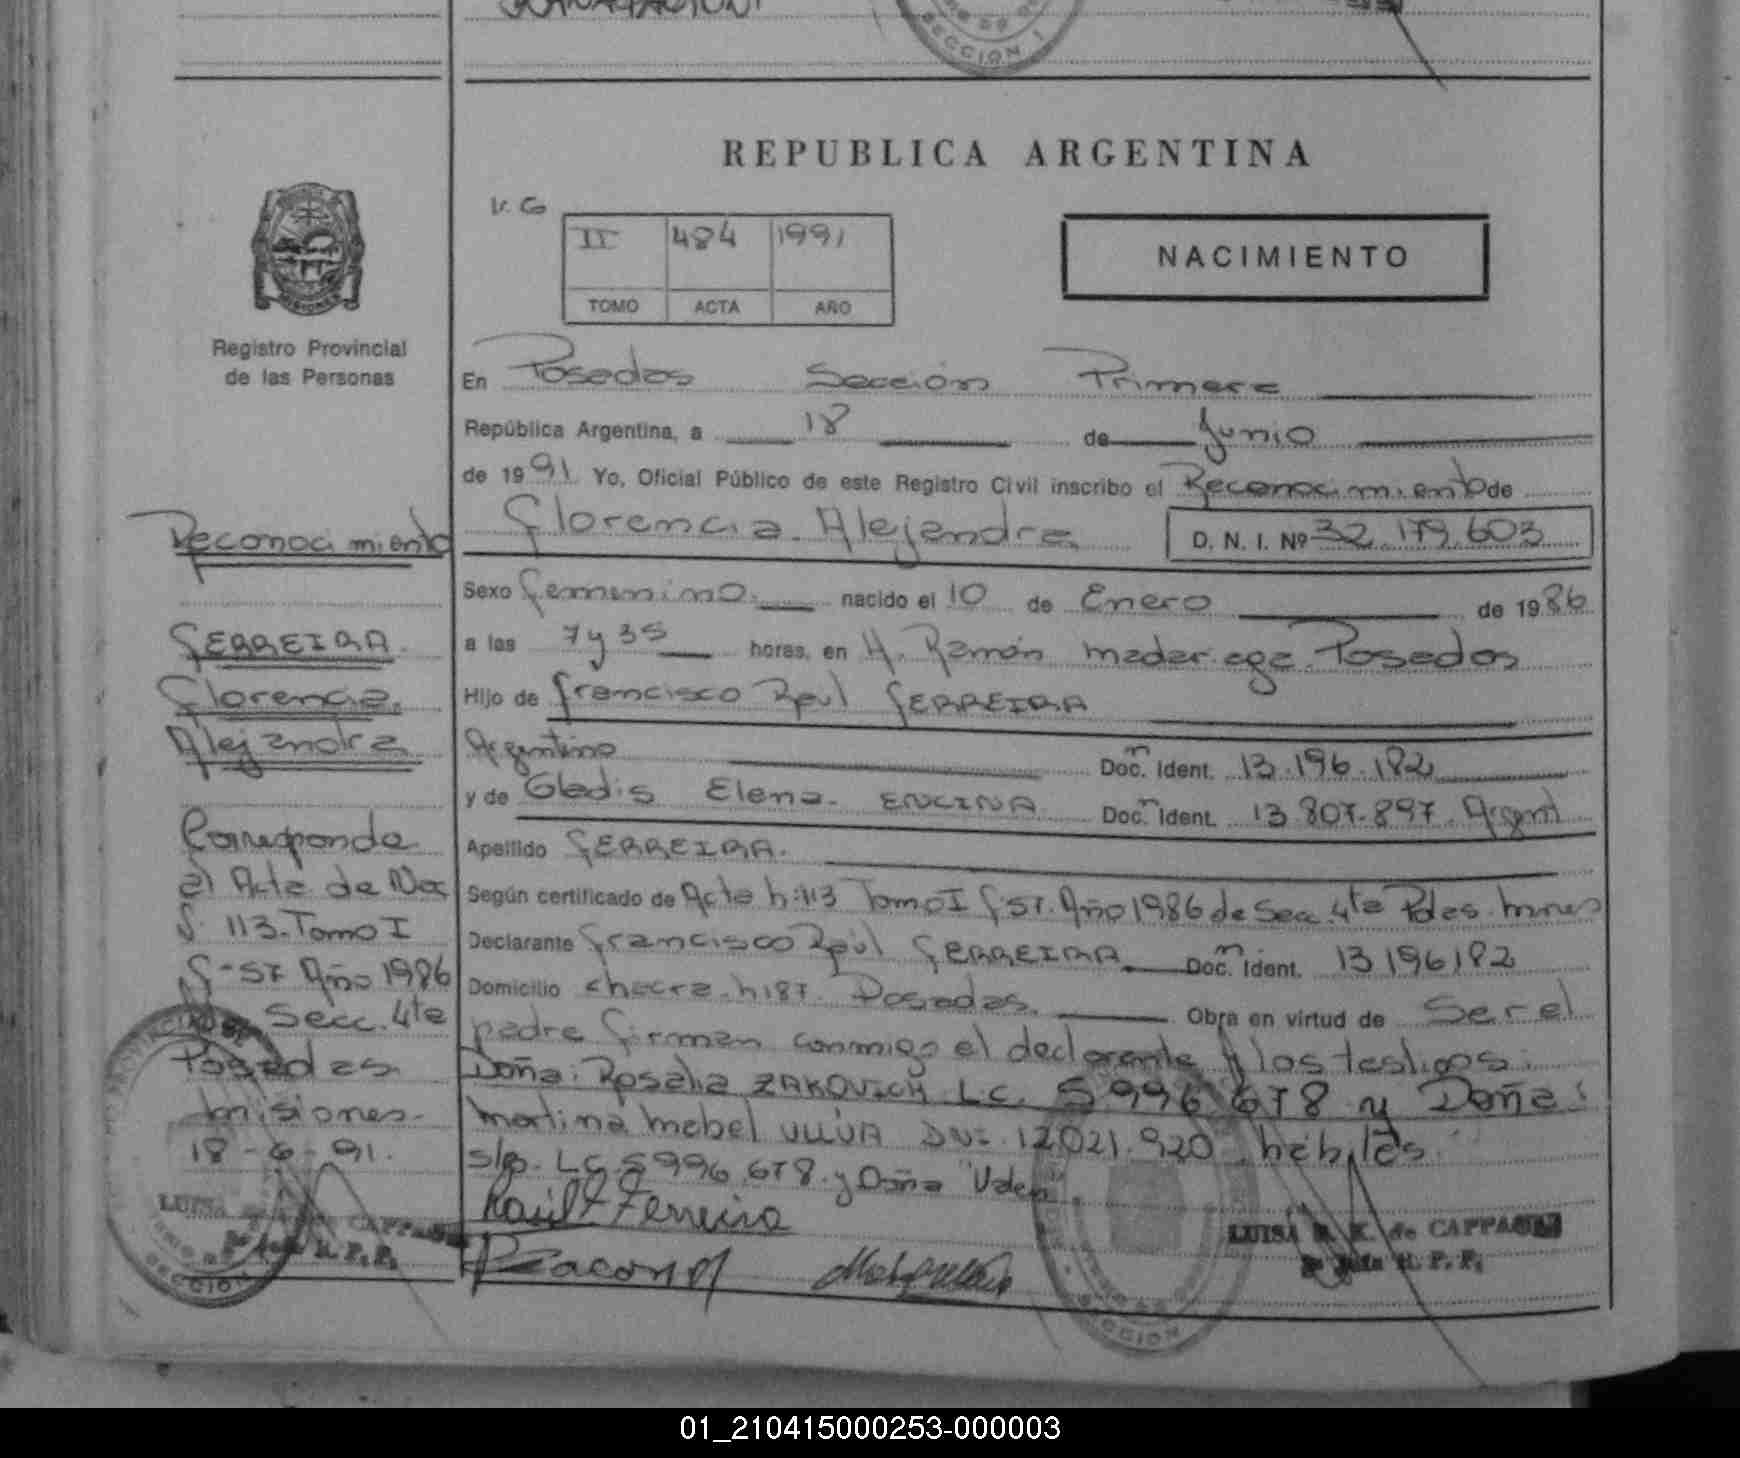 SECCION 1
REPUBLICA ARGENTINA
V. G
II 484 1991
TOMO ACTA AÑO
NACIMIENTO
MISIONES
Registro Provincial
de las Personas
En Posadas Sección Primera
República Argentina, a 18 de Junio
de 1991 Yo, Oficial Público de este Registro Civil inscribo el Reconocimiento de
Florencia Alejandra D. N. I. Nº 32.179.603
Sexo femenino. nacido el 10 de Enero de 1986
a las 7 y 35 horas, en H. Ramón Madariaga. Posadas
Hijo de Francisco Raúl FERREIRA
Argentino Doc. Ident. 13.196.182
y de Gladis Elena ENCINA Doc. Ident. 13.807.897. Argent
Apellido FERREIRA.
Según certificado de Acta n: 113 Tomo I f 57. Año 1986 de Sec. 4ta Pdas. mnes
Declarante Francisco Raúl FERREIRA Doc. Ident. 13196182
Domicilio chacra n 187. Posadas. Obra en virtud de Ser el
padre firman conmigo el declarante y los testigos:
Doña: Rosalia ZAKOVICH L.C. 5.996.678 y Doña:
Martina Mabel DNI. 12.021.920. hábiles.
s/p. L.C. 5.996.678. y Doña Valen
Raúl F Ferreira
LUISA R. K. de
Reconocimiento
FERREIRA
Florencia
Alejandra
Corresponde
al Acta de Nac
n. 113. Tomo I
f-57 Año 1986
Secc. 4ta
Posadas
Misiones.
18-6-91.
LUISA de
SECCION
SECCION
01_210415000253-000003